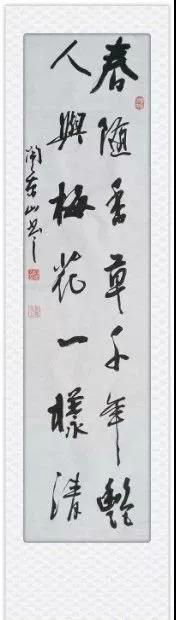 春隨香草千年艷
人與梅花一樣清